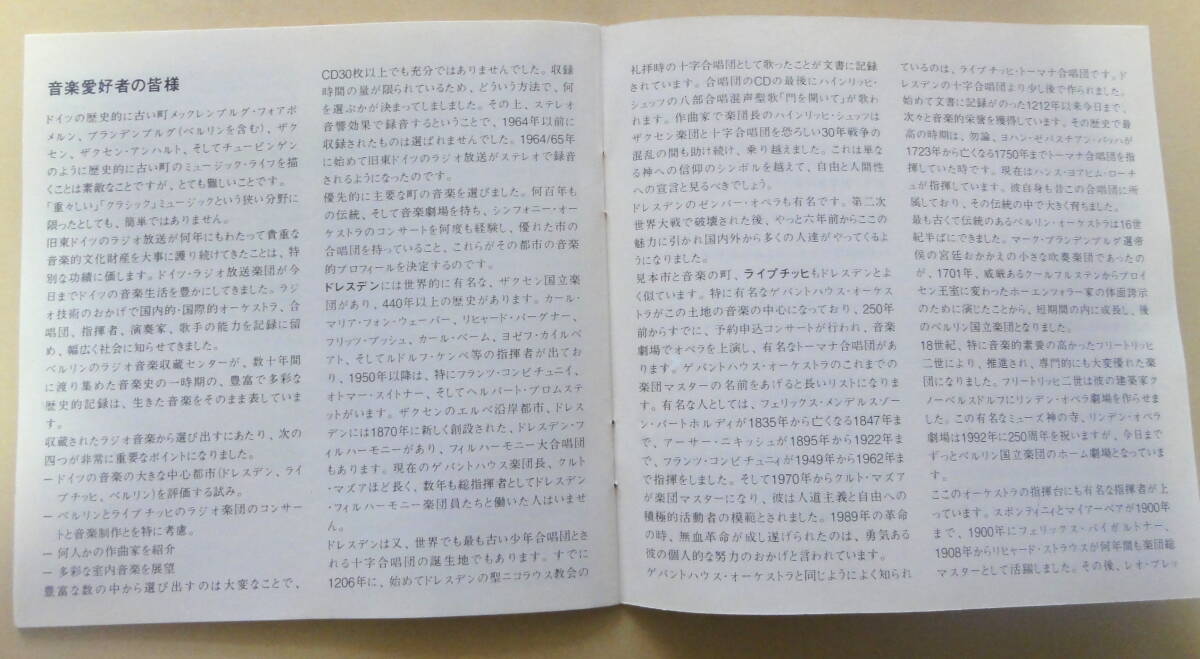 音楽愛好者の皆様
ドイツの歴史的に古い町メックレンブルグ・フォアポ
メルン、ブランデンブルグ(ベルリンを含む)、ザク
セン、ザクセン・アンハルト、そしてチュービンゲン
のように歴史的に古い町のミュージック・ライフを描
くことは素敵なことですが、とても難しいことです。
「重々しい」「クラシック」ミュージックという狭い分野に
限ったとしても、簡単ではありません。
旧東ドイツのラジオ放送が何年にもわたって貴重な
音楽的文化財産を大事に護り続けてきたことは、特
別な功績に価します。ドイツ・ラジオ放送楽団が今
日までドイツの音楽生活を豊かにしてきました。ラジ
オ技術のおかげで国内的・国際的オーケストラ、合
唱団、指揮者、演奏家、歌手の能力を記録に留
め、幅広く社会に知らせてきました。
ベルリンのラジオ音楽収蔵センターが、数十年間
に渡り集めた音楽史の一時期の、豊富で多彩な
歴史的記録は、生きた音楽をそのまま表していま
す。
収蔵されたラジオ音楽から選び出すにあたり、次の
四つが非常に重要なポイントになりました。
– ドイツの音楽の大きな中心都市(ドレスデン、ライ
プチッヒ、ベルリン)を評価する試み。
– ベルリンとライプチッヒのラジオ楽団のコンサー
トと音楽制作とを特に考慮。
– 何人かの作曲家を紹介
– 多彩な室内音楽を展望
豊富な数の中から選び出すのは大変なことで、
CD30枚以上でも充分ではありませんでした。収録
時間の量が限られているため、どういう方法で、何
を選ぶかが決まってしまいました。その上、ステレオ
音響効果で録音するということで、1964年以前に
収録されたものは選ばれませんでした。1964/65年
に始めて旧東ドイツのラジオ放送がステレオで録音
されるようになったのです。
優先的に主要な町の音楽を選びました。何百年も
の伝統、そして音楽劇場を持ち、シンフォニー・オー
ケストラのコンサートを何度も経験し、優れた市の
合唱団を持っていること、これらがその都市の音楽
的プロフィールを決定するのです。
ドレスデンには世界的に有名な、ザクセン国立楽
団があり、440年以上の歴史があります。カール・
マリア・フォン・ウェーバー、リヒャード・バーグナー、
フリッツ・ブッシュ、カール・ベーム、ヨゼフ・カイルベ
アト、そしてルドルフ・ケンペ等の指揮者が出てお
り、1950年以降は、特にフランツ・コンビチュニイ、
オトマー・スイトナー、そしてヘルバート・ブロムステ
ットがいます。ザクセンのエルベ沿岸都市、ドレス
デンには1870年に新しく創設された、ドレスデン・フ
ィルハーモニーがあり、フィルハーモニー大合唱団
もあります。現在のゲバントハウス楽団長、クルト
・マズアほど長く、数年も総指揮者としてドレスデン
・フィルハーモニー楽団員たちと働いた人はいませ
ん。
ドレスデンは又、世界でも最も古い少年合唱団とさ
れる十字合唱団の誕生地でもあります。すでに
1206年に、始めてドレスデンの聖ニコラウス教会の
礼拝時の十字合唱団として歌ったことが文書に記録
されています。合唱団のCDの最後にハインリッヒ・
シュッツの八部合唱混声聖歌「門を開いて」が歌わ
れます。作曲家で楽団長のハインリッヒ・シュッツは
ザクセン楽団と十字合唱団を恐ろしい30年戦争の
混乱の間も助け続け、乗り越えました。これは単な
る神への信仰のシンボルを越えて、自由と人間性
への宣言と見るべきでしょう。
ドレスデンのゼンバー・オペラも有名です。第二次
世界大戦で破壊された後、やっと六年前からここの
魅力に引かれ国内外から多くの人達がやってくるよ
うになりました。
見本市と音楽の町、ライプチッヒもドレスデンとよ
く似ています。特に有名なゲバントハウス・オーケス
トラがこの土地の音楽の中心になっており、250年
前からすでに、予約申込コンサートが行われ、音楽
劇場でオペラを上演し、有名なトーマナ合唱団があ
ります。ゲバントハウス・オーケストラのこれまでの
楽団マスターの名前をあげると長いリストになりま
す。有名な人としては、フェリックス・メンデルスゾー
ン・バートホルディが1835年から亡くなる1847年ま
で、アーサー・ニキッシュが1895年から1922年ま
で、フランツ・コンビチュニィが1949年から1962年ま
で指揮をしました。そして1970年からクルト・マズア
が楽団マスターになり、彼は人道主義と自由への
積極的活動者の模範とされました。1989年の革命
の時、無血革命が成し遂げられたのは、勇気ある
彼の個人的な努力のおかげと言われています。
ゲバントハウス・オーケストラと同じようによく知られ
ているのは、ライプチッヒ・トーマナ合唱団です。ド
レスデンの十字合唱団より少し後で作られました。
始めて文書に記録がのった1212年以来今日まで、
次々と音楽的栄誉を獲得しています。その歴史で最
高の時期は、勿論、ヨハン・ゼバスチアン・バッハが
1723年から亡くなる1750年までトーマナ合唱団を指
揮していた時です。現在はハンス・ヨアヒム・ローチ
ュが指揮しています。彼自身も昔この合唱団に所
属しており、その伝統の中で大きく育ちました。
最も古くて伝統のあるベルリン・オーケストラは16世
紀半ばにできました。マーク・ブランデンブルグ選帝
侯の宮廷おかかえの小さな吹奏楽団であったの
が、1701年、威厳あるクールフルステンからプロイ
セン王室に変わったホーエンツォラー家の体面誇示
のために演じたことから、短期間の内に成長し、後
のベルリン国立楽団となりました。
18世紀、特に音楽的素養の高かったフリートリッヒ
二世により、推進され、専門的にも大変優れた楽
団になりました。フリートリッヒ二世は彼の建築家ク
ノーベルスドルフにリンデン・オペラ劇場を作らせま
した。この有名なミューズ神の寺、リンデン・オペラ
劇場は1992年に250周年を祝いますが、今日まで
ずっとベルリン国立楽団のホーム劇場となっていま
す。
ここのオーケストラの指揮台にも有名な指揮者が上
っています。スポンティニとマイアーベアが1900年
まで、1900年にフェリックス・バイガルトナー、
1908年からリヒャード・ストラウスが何年間も楽団総
マスターとして活躍しました。その後、レオ・ブレッ